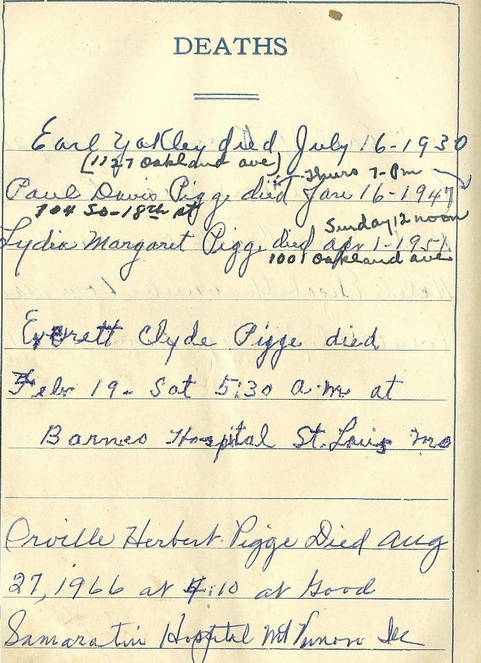 DEATHS
Earl Yakley died July 16-1930
(1127 Oakland ave) Thurs 7-Pm
Paul Davis Pigge died Jan 16-1947
704 So-18th st Sunday 12 noon
Lydia Margaret Pigge died apr 1-1951
1001 Oakland ave
Everett Clyde Pigge died
Feb 19- Sat 5:30 a.m at
Barnes Hospital St. Louis Mo
Orville Herbert Pigge Died Aug
27, 1966 at 4:10 at Good
Samaratin Hospital Mt Vernon Ill